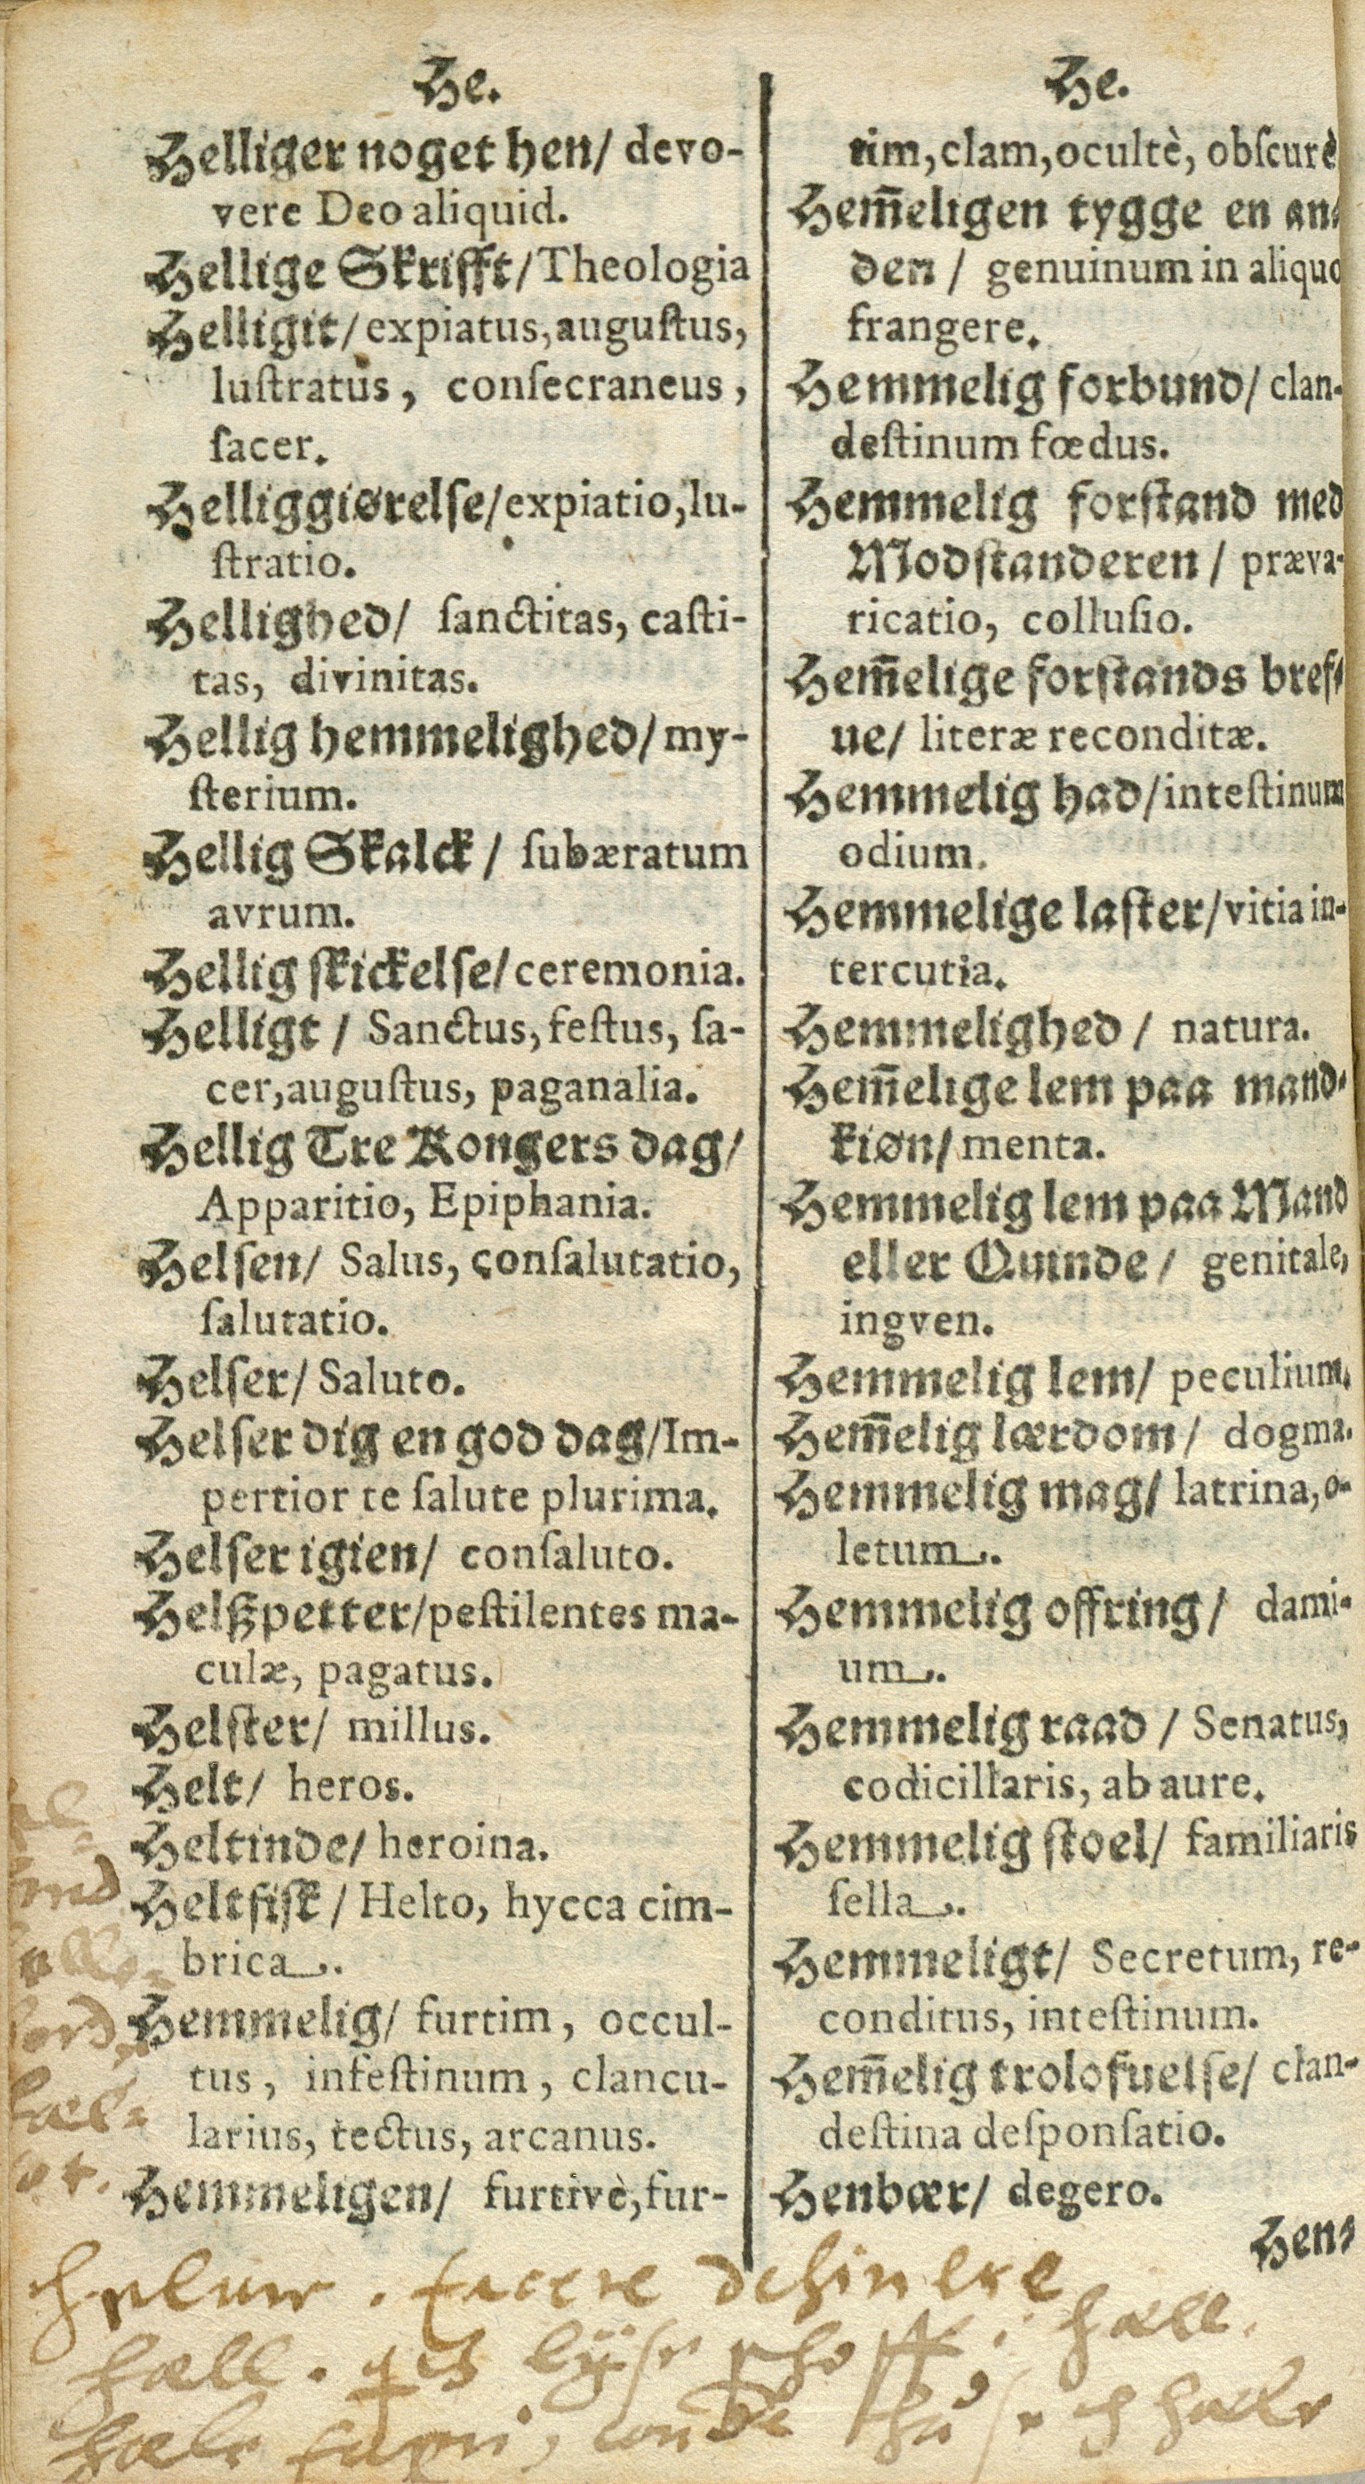 He.
Helliger noget hen/ devo-
vere Deo aliquid.
Hellige Skrifft/Theologia
Helligit/expiatus,auguſtus,
luſtratus, conſecraneus,
ſacer.
Helliggiørelſe/expiatio,lu-
ſtratio.
Hellighed/ ſanctitas, caſti-
tas, divinitas.
Hellig hemmelighed/my-
ſterium.
Hellig Skalck/ ſubæratum
avrum.
Hellig ſkickelſe/ceremonia.
Helligt/ Sanctus, feſtus, ſa-
cer,auguſtus, paganalia.
Hellig Tre Kongers dag/
Apparitio, Epiphania.
Helſen/ Salus, conſalutatio,
ſalutatio.
Helſer/ Saluto.
Helſer dig en god dag/Im-
pertior te ſalute plurima.
Helſer igien/ conſaluto.
Helßpetter/peſtilentes ma-
culæ, pagatus.
Helſter/ millus.
Helt/ heros.
Heltinde/ heroina.
Heltfiſk/ Helto, hycca cim-
brica.
Hemmelig/ furtim, occul-
tus, inteſtinum, clancu-
larius, tectus, arcanus.
Hemmeligen/ furtivè,fur-
He.
tim,clam,ocultè, obſcurè
Hem̄eligen tygge en an-
den/ genuinum in aliquo
frangere.
Hemmelig forbund/ clan-
deſtinum fœdus.
Hemmelig forſtand med
Modſtanderen/ præva-
ricatio, colluſio.
Hem̄elige forſtands bref-
ue/ literæ reconditæ.
Hemmelig had/inteſtinum
odium.
Hemmelige laſter/vitia in-
tercutia.
Hemmelighed/ natura.
Hem̄elige lem paa mand-
kiøn/ menta.
Hemmelig lem paa Mand
eller Quinde/ genitale,
ingven.
Hemmelig lem/ peculium.
Hem̄elig lærdom/ dogma.
Hemmelig mag/ latrina, o-
letum.
Hemmelig offring/ dami-
um.
Hemmelig raad/ Senatus,
codicillaris, ab aure.
Hemmelig ſtoel/ familiaris
ſella.
Hemmeligt/ Secretum, re-
conditus, inteſtinum.
Hem̄elig trolofuelſe/ clan-
deſtina deſponſatio.
Henbær/ degero.
Hen-